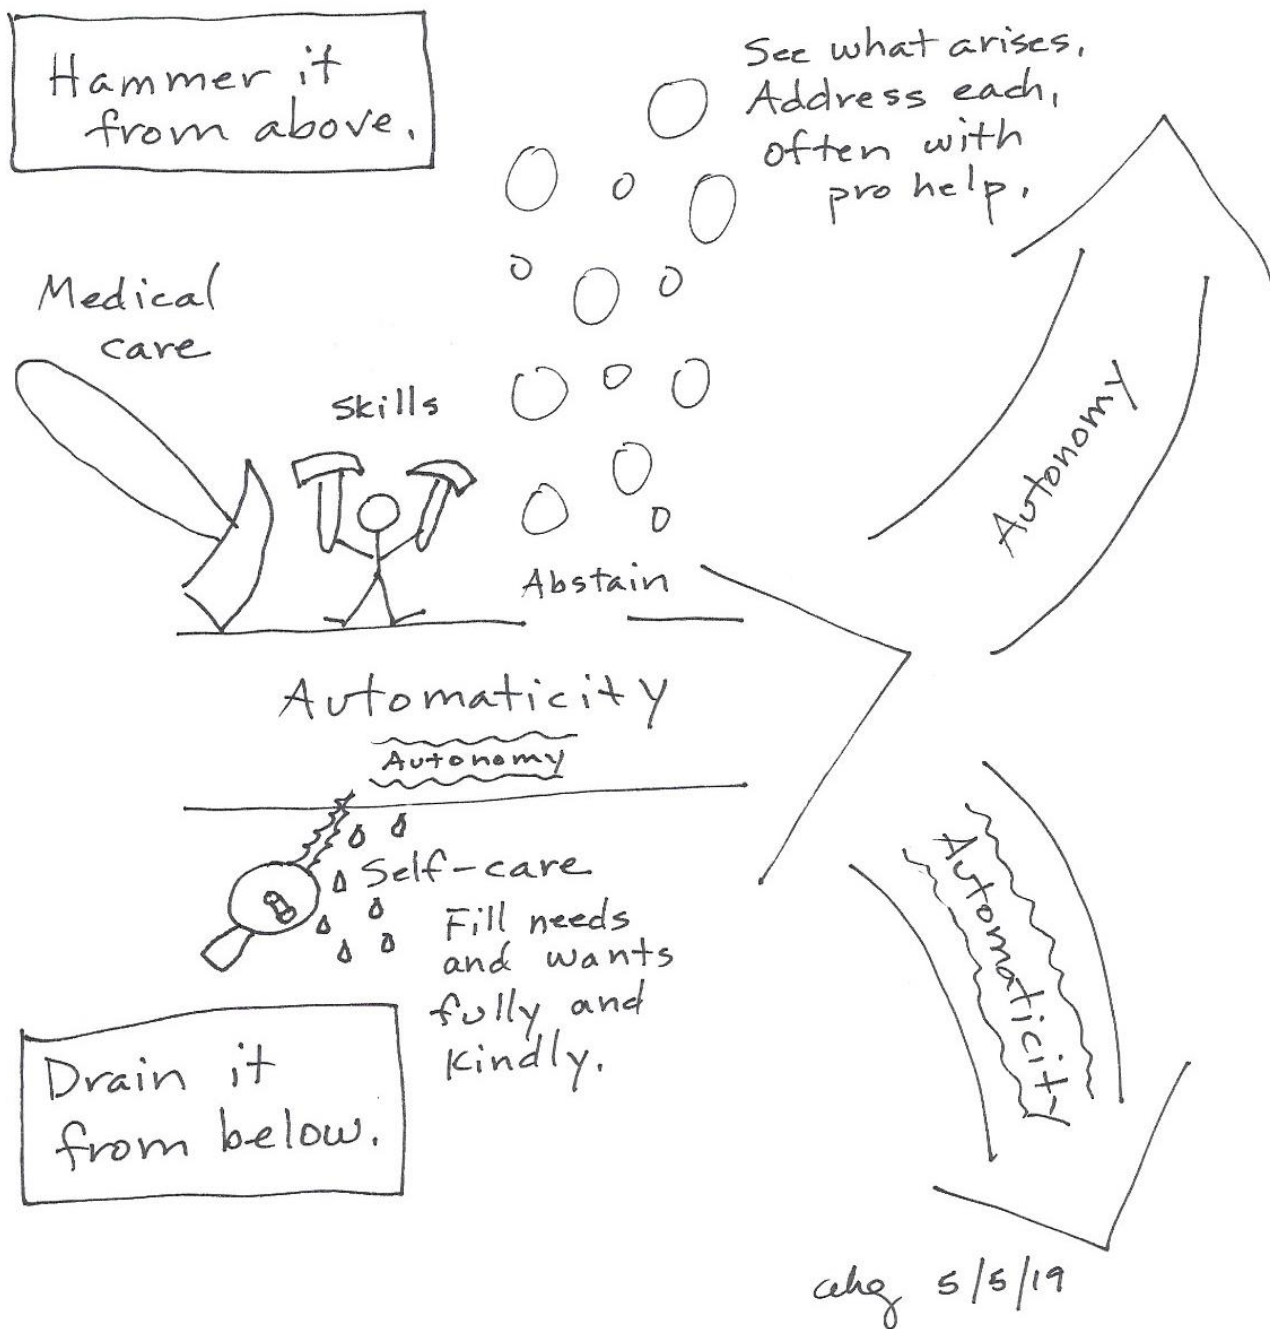 Hammer it
from above.
See what arises.
Address each,
often with
pro help.
Medical
care
Skills
Abstain
Autonomy
Automaticity
Autonomy
Self-care
Fill needs
and wants
fully and
kindly.
Automaticity
Drain it
from below.
5/5/19